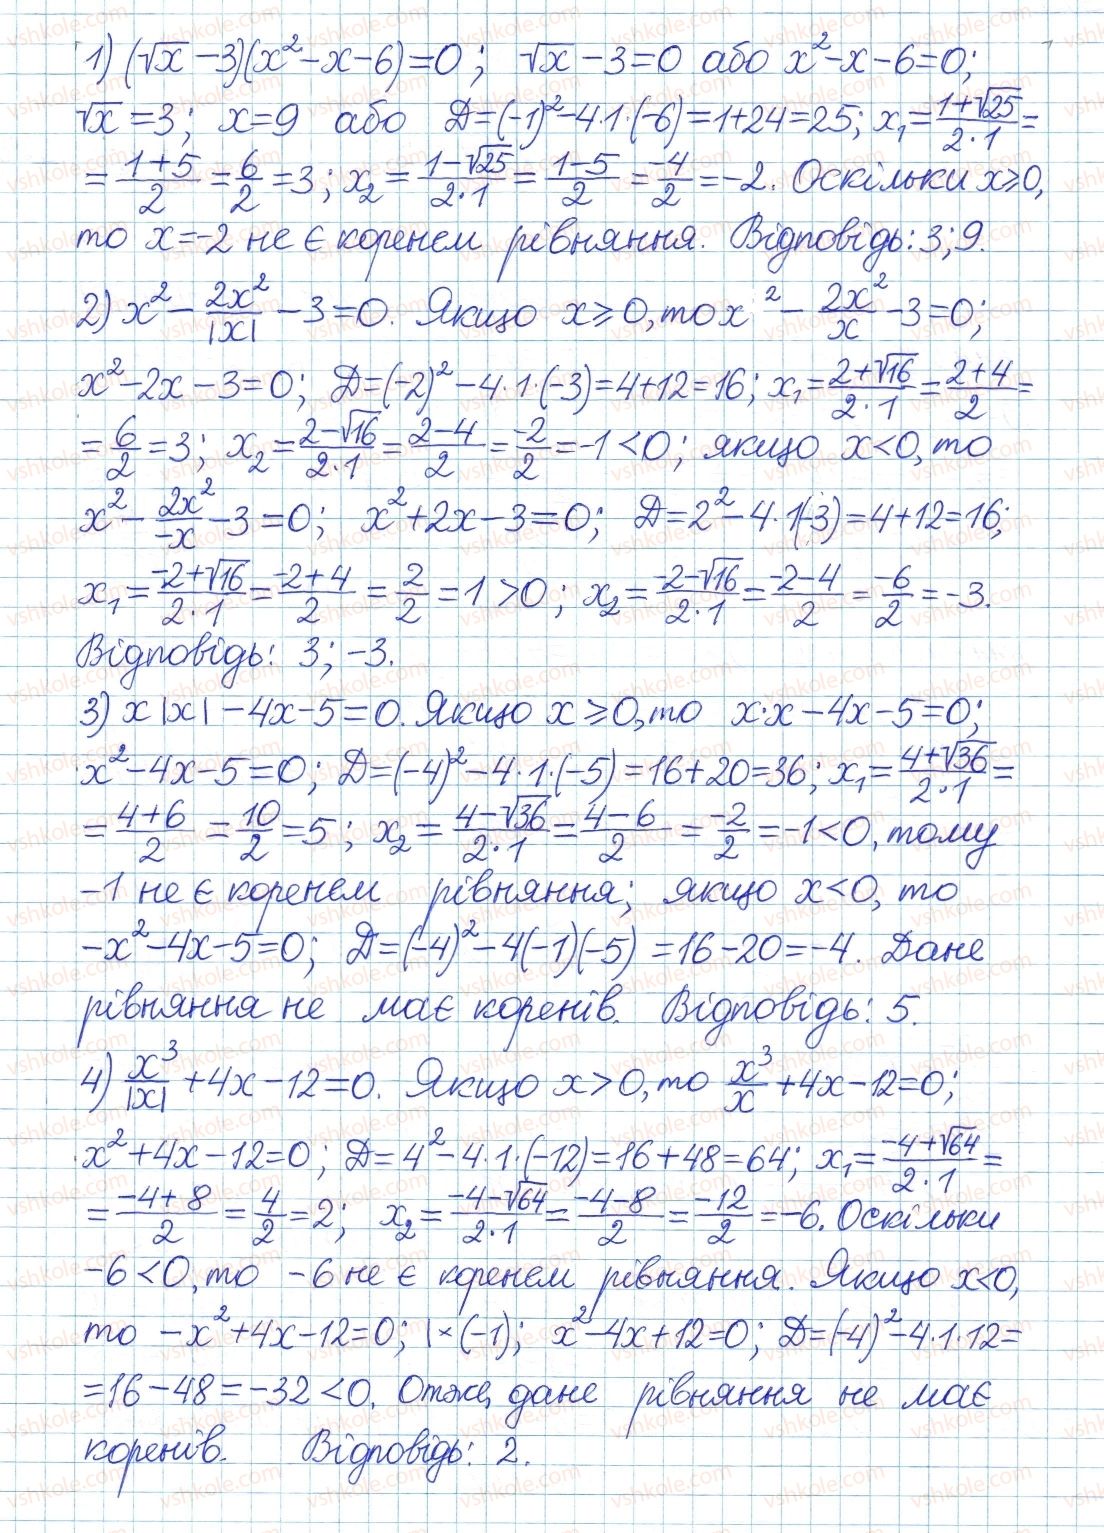 1) (√x − 3)(x² − x − 6) = 0; √x − 3 = 0 або x² − x − 6 = 0;
√x = 3; x = 9 або Д = (−1)² − 4·1·(−6) = 1 + 24 = 25; x₁ = (1+√25)/(2·1) =
= (1+5)/2 = 6/2 = 3; x₂ = (1−√25)/(2·1) = (1−5)/2 = −4/2 = −2. Оскільки x ⩾ 0,
то x = −2 не є коренем рівняння. Відповідь: 3; 9.
2) x² − 2x²/|x| − 3 = 0. Якщо x ⩾ 0, то x² − 2x²/x − 3 = 0;
x² − 2x − 3 = 0; Д = (−2)² − 4·1·(−3) = 4 + 12 = 16; x₁ = (2+√16)/(2·1) = (2+4)/2 =
= 6/2 = 3; x₂ = (2−√16)/(2·1) = (2−4)/2 = −2/2 = −1 < 0; якщо x < 0, то
x² − 2x²/−x − 3 = 0; x² + 2x − 3 = 0; Д = 2² − 4·1(−3) = 4 + 12 = 16;
x₁ = (−2+√16)/(2·1) = (−2+4)/2 = 2/2 = 1 > 0; x₂ = (−2−√16)/(2·1) = (−2−4)/2 = −6/2 = −3.
Відповідь: 3; −3.
3) x|x| − 4x − 5 = 0. Якщо x ⩾ 0, то x·x − 4x − 5 = 0;
x² − 4x − 5 = 0; Д = (−4)² − 4·1·(−5) = 16 + 20 = 36; x₁ = (4+√36)/(2·1) =
= (4+6)/2 = 10/2 = 5; x₂ = (4−√36)/(2·1) = (4−6)/2 = −2/2 = −1 < 0, тому
−1 не є коренем рівняння; якщо x < 0, то
−x² − 4x − 5 = 0; Д = (−4)² − 4(−1)(−5) = 16 − 20 = −4. Дане
рівняння не має коренів. Відповідь: 5.
4) x³/|x| + 4x − 12 = 0. Якщо x > 0, то x³/x + 4x − 12 = 0;
x² + 4x − 12 = 0; Д = 4² − 4·1·(−12) = 16 + 48 = 64; x₁ = (−4+√64)/(2·1) =
= (−4+8)/2 = 4/2 = 2; x₂ = (−4−√64)/(2·1) = (−4−8)/2 = −12/2 = −6. Оскільки
−6 < 0, то −6 не є коренем рівняння. Якщо x < 0,
то −x² + 4x − 12 = 0; |×(−1); x² − 4x + 12 = 0; Д = (−4)² − 4·1·12 =
= 16 − 48 = −32 < 0. Отже, дане рівняння не має
коренів. Відповідь: 2.